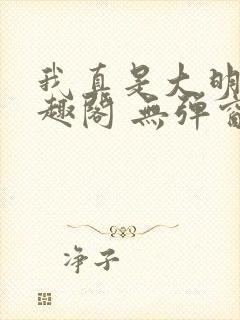 我真是大明
趣阁 無弹窗
净子